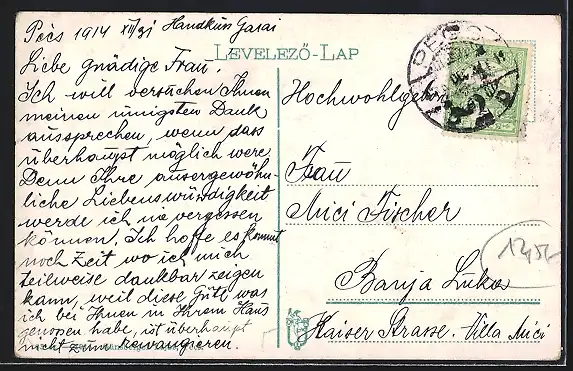 Pécs 1914 XII/31 Handkuss Garai
LEVELEZŐ-LAP
Liebe gnädige Frau.
Ich will versuchen Ihnen
meinen innigsten Dank
aussprechen, wenn dass
überhaupt möglich were
Denn Ihre ausergewöhn-
liche Liebenswürdigkeit
werde ich nie vergessen
können. Ich hoffe es kommt
noch Zeit wo ich mich
teilweise dankbar zeigen
kann, weil diese Güte was
ich bei Ihnen in Ihrem Haus
genossen habe, ist überhaupt
nicht zum rewangieren.
PÉCS
Hochwohlgeb
Frau
Mici Fischer
Banja Luka
Kaiser Strasse. Villa Mici